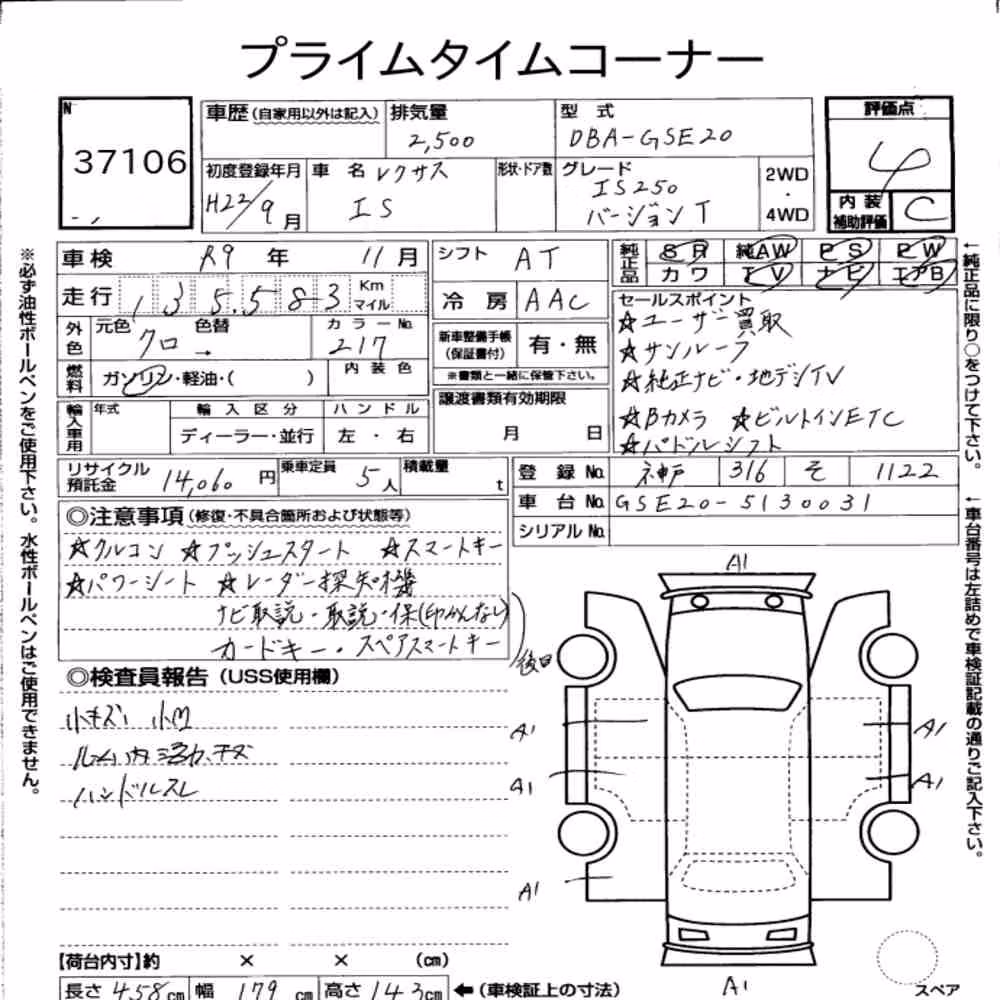 プライムタイムコーナー
N
37106
車歴 (自家用以外は記入) 排気量 2,500
型式 DBA-GSE20
評価点 4
内装補助評価 C
初度登録年月 H22/9月
車名 レクサス IS
形状・ドア数
グレード IS250 バージョンT
2WD・4WD
車検 R9年 11月
シフト AT
純正品 SR 純AW PS PW
カワ TV ナビ エアB
走行 135583 Km マイル
冷房 AAC
セールスポイント
☆ユーザー買取
☆サンルーフ
☆純正ナビ・地デジTV
☆Bカメラ ☆ビルトインETC
☆パドルシフト
外色 元色 クロ 色替 → カラーNo. 217
新車整備手帳(保証書付) 有・無
※書類と一緒に保管下さい。
燃料 ガソリン・軽油・( ) 内装色
譲渡書類有効期限
月 日
輸入車用 年式 輸入区分 ハンドル
ディーラー・並行 左・右
リサイクル預託金 14,060円 乗車定員 5人 積載量 t
登録No. 神戸 316 そ 1122
車台No. GSE20-5130031
シリアルNo.
◎注意事項(修復・不具合箇所および状態等)
☆クルコン ☆プッシュスタート ☆スマートキー
☆パワーシート ☆レーダー探知機
ナビ取説・取説・保(印かんなし)
カードキー・スペアスマートキー
後日
◎検査員報告(USS使用欄)
小キズ 小凹
ハンドルスレ
A1
A1
A1
A1
A1
A1
A1
【荷台内寸】約 × × (cm)
長さ 458cm 幅 179cm 高さ 143cm ←(車検証上の寸法)
スペア
※必ず油性ボールペンをご使用下さい。水性ボールペンはご使用できません。
←純正品に限り○をつけて下さい。
←車台番号は左詰めで車検証記載の通りご記入下さい。